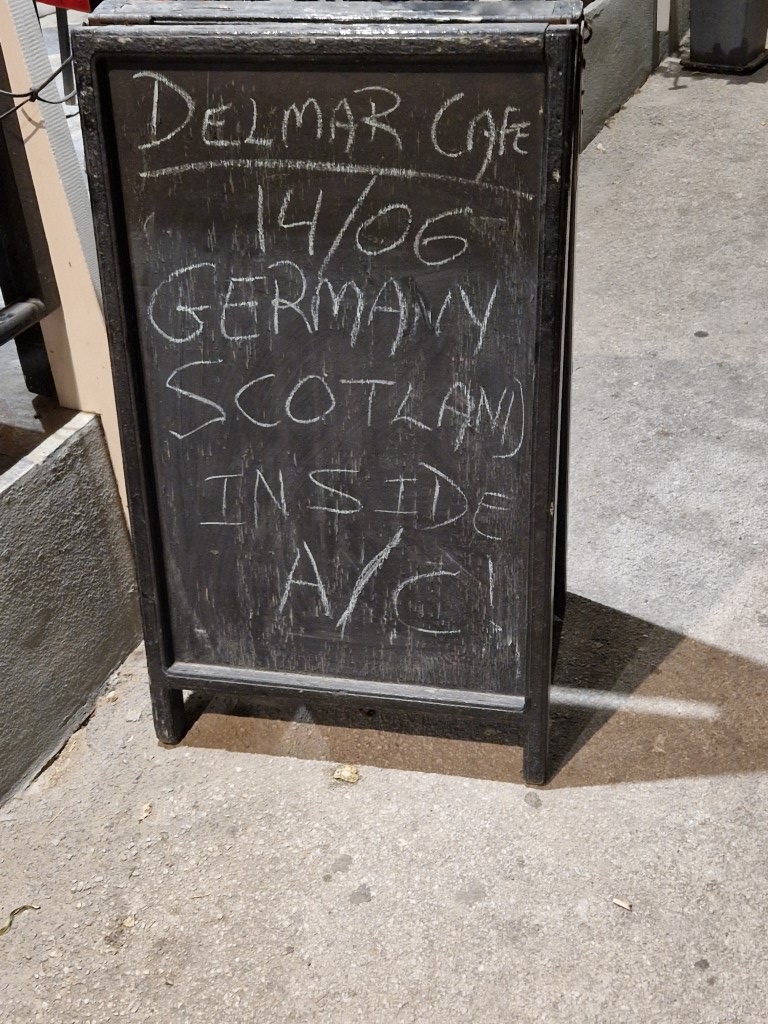 DELMAR CAFE
14/06
GERMANY
SCOTLAND
INSIDE
A/C!